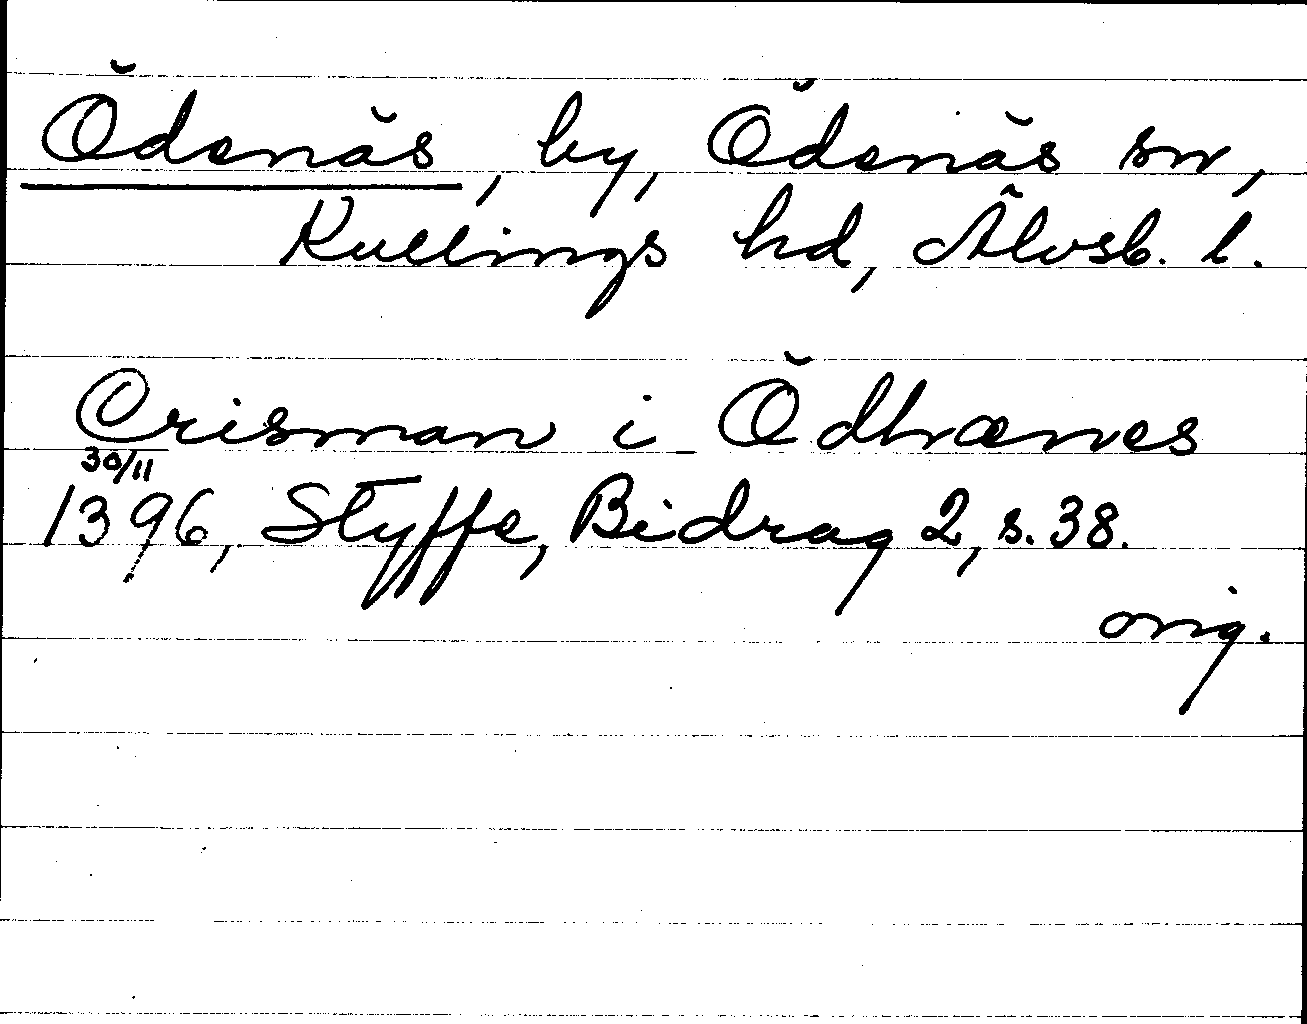 Ödenäs, by, Ödenäs sn,
Kullings hd, Älvsb. l.
Crisman i Ödhrænes
30/11
1396, Styffe, Bidrag 2, s. 38.
orig.